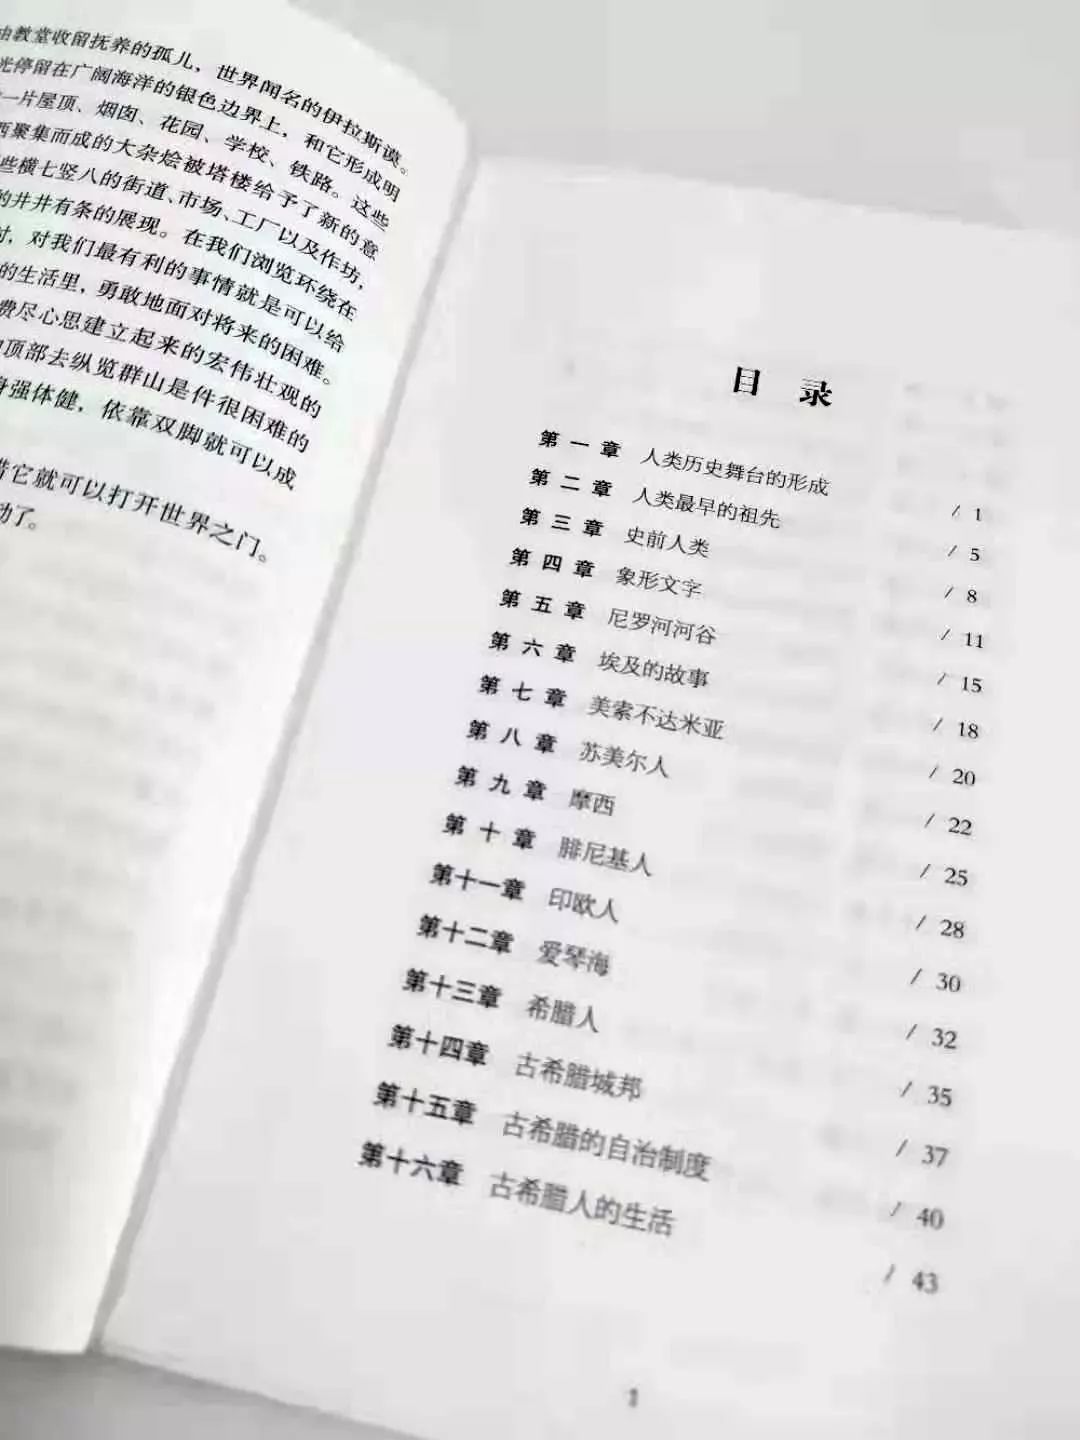 由教堂收留抚养的孤儿，世界闻名的伊拉斯谟。
光停留在广阔海洋的银色边界上，和它形成明
一片屋顶、烟囱、花园、学校、铁路。这些
西聚集而成的大杂烩被塔楼给予了新的意
些横七竖八的街道、市场、工厂以及作坊，
的井井有条的展现。在我们浏览环绕在
时，对我们最有利的事情就是可以给
的生活里，勇敢地面对将来的困难。
费尽心思建立起来的宏伟壮观的
顶部去纵览群山是件很困难的
身强体健，依靠双脚就可以成
借它就可以打开世界之门。
动了。
目 录
第一章 人类历史舞台的形成 / 1
第二章 人类最早的祖先 / 5
第三章 史前人类 / 8
第四章 象形文字 / 11
第五章 尼罗河河谷 / 15
第六章 埃及的故事 / 18
第七章 美索不达米亚 / 20
第八章 苏美尔人 / 22
第九章 摩西 / 25
第十章 腓尼基人 / 28
第十一章 印欧人 / 30
第十二章 爱琴海 / 32
第十三章 希腊人 / 35
第十四章 古希腊城邦 / 37
第十五章 古希腊的自治制度 / 40
第十六章 古希腊人的生活 / 43
1